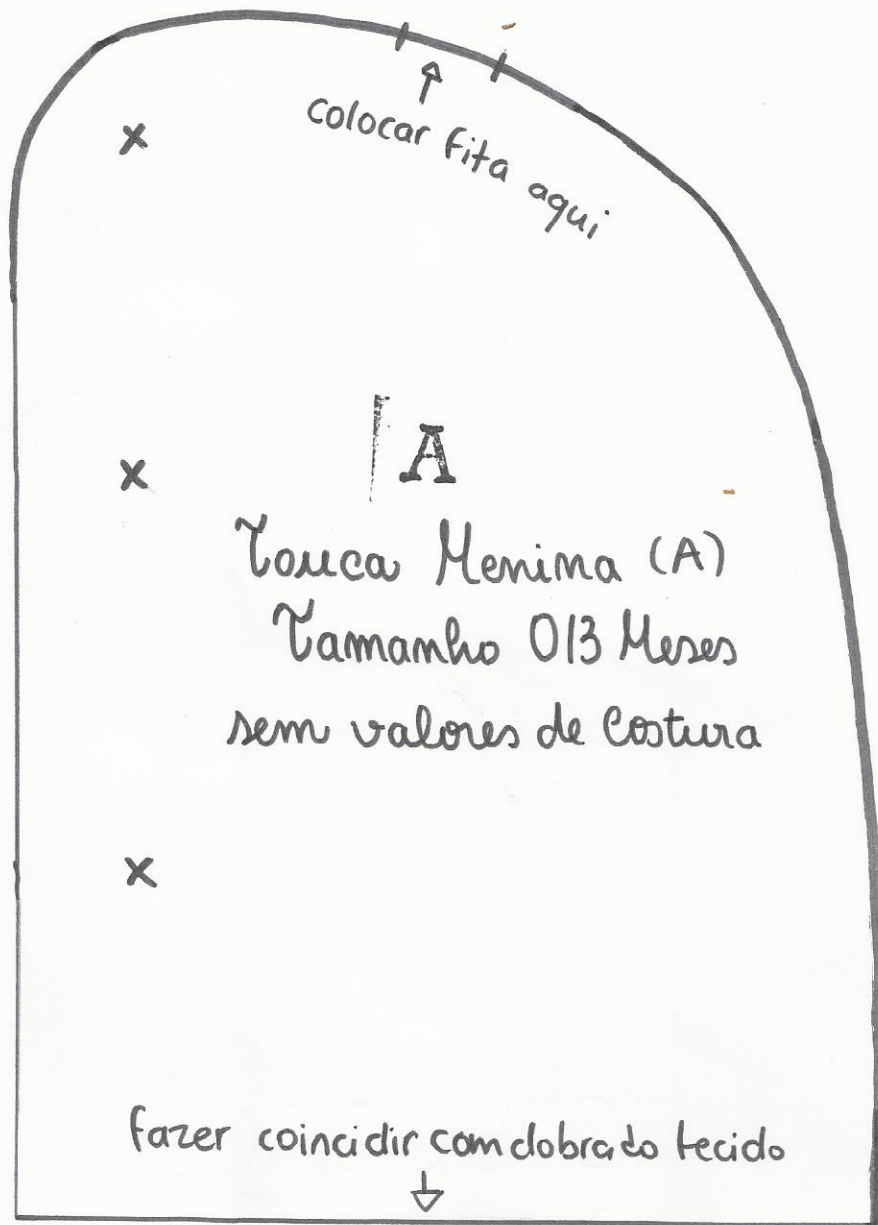 colocar fita aqui
x
x
A
Touca Menina (A)
Tamanho 0/3 Meses
sem valores de Costura
x
fazer coincidir com dobra do tecido